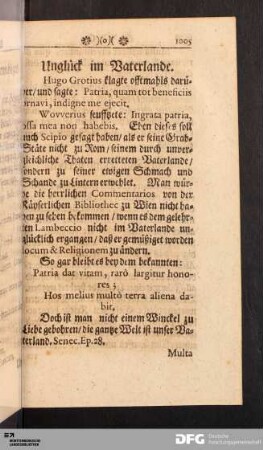 )(o)( 1005
Unglück im Vaterlande.
Hugo Grotius klagte offtmahls darü-
er/ und sagte: Patria, quam tot beneficiis
ornavi, indigne me ejecit.
Wovverius seufftzete: Ingrata patria,
ossa mea non habebis. Eben dieses soll
auch Scipio gesagt haben/ als er seine Grab-
Stäte nicht zu Rom/ seinem durch unver-
gleichliche Thaten erretteten Vaterlande/
sondern zu seiner ewigen Schmach und
Schande zu Lintern erwehlet. Man wür-
de die herrlichen Commentarios von der
Käyserlichen Bibliothec zu Wien nicht ha-
ben zu sehen bekommen/ wenn es dem gelehr-
ten Lambeccio nicht im Vaterlande un-
glücklich ergangen/ daß er gemüßiget worden
locum & Religionem zu ändern.
So gar bleibt es bey dem bekannten:
Patria dat vitam, rarò largitur hono-
res;
Hos melius multò terra aliena da-
bit.
Doch ist man nicht einem Winckel zu
Liebe gebohren/ die gantze Welt ist unser Va-
terland. Senec. Ep. 28.
Multa
DFG Deutsche
Forschungsgemeinschaft